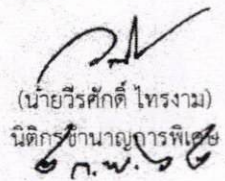 (นายวีรศักดิ์ ไทรงาม)
นิติกรชำนาญการพิเศษ
ก.พ. ๖๒